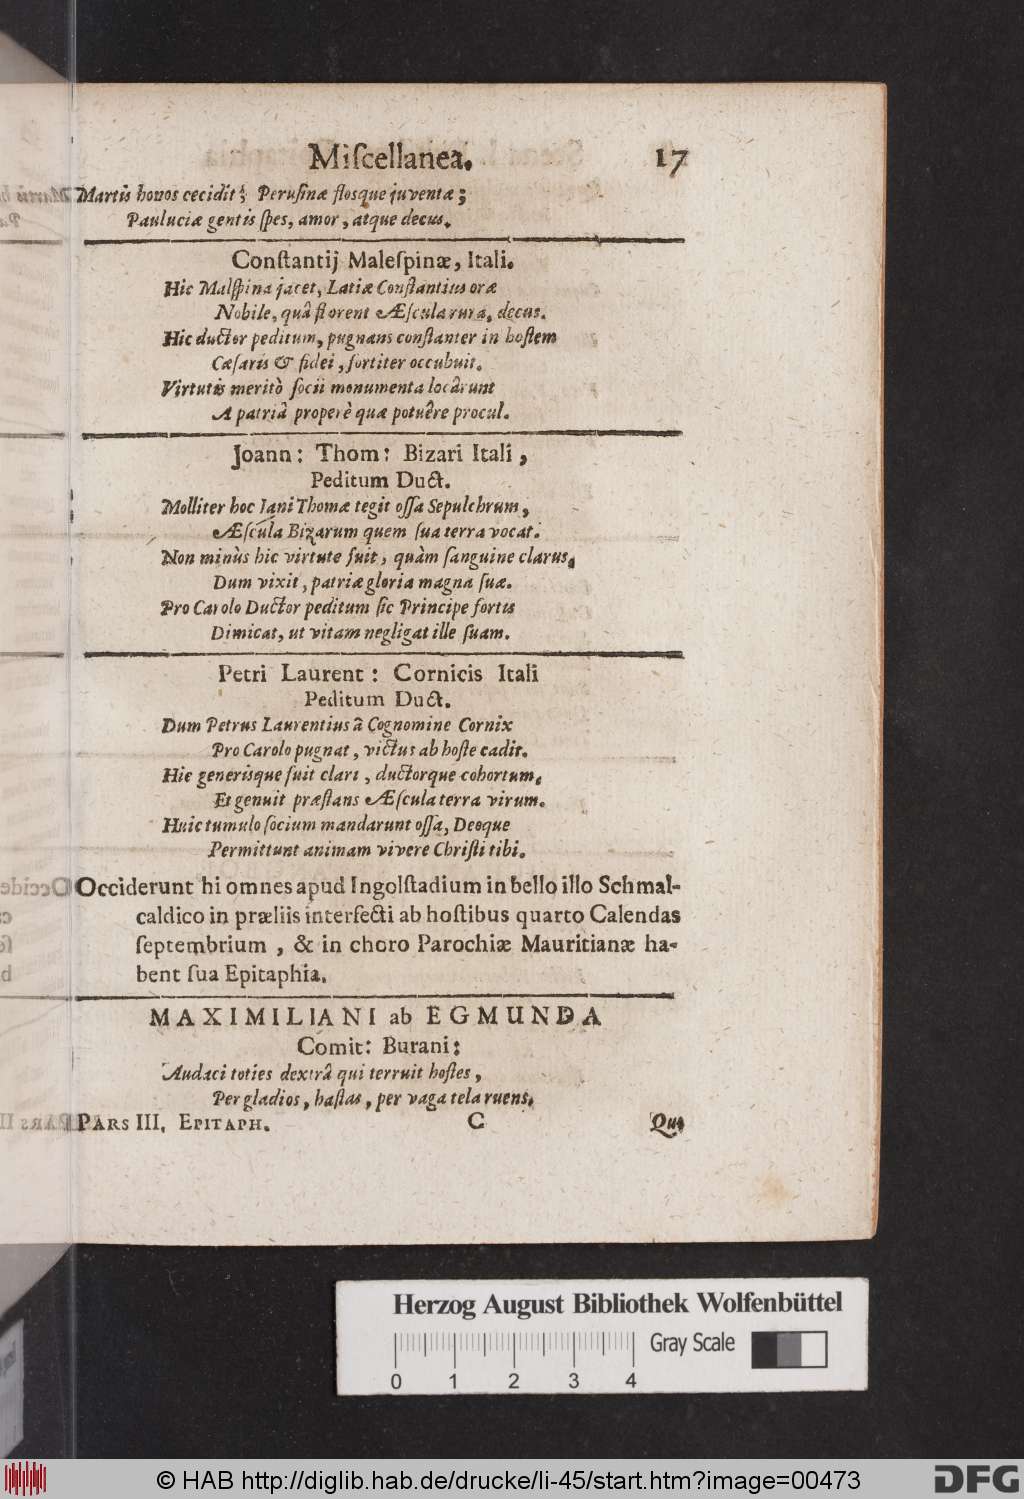 Miſcellanea. 17
Martis honos cecidit; Peruſinæ floſque juventæ;
Pauluciæ gentis ſpes, amor, atque decus.
Conſtantij Maleſpinæ, Itali.
Hic Malſpina jacet, Latiæ Conſtantius oræ
Nobile, quâ florent Æſcula rura, decus.
Hic ductor peditum, pugnans conſtanter in hoſtem
Cæſaris & fidei, fortiter occubuit.
Virtutis meritò ſocii monumenta locârunt
A patriâ properè quæ potuêre procul.
Joann: Thom: Bizari Itali,
Peditum Duct.
Molliter hoc Jani Thomæ tegit oſſa Sepulchrum,
Æſcula Bizarum quem ſua terra vocat.
Non minùs hic virtute fuit, quàm ſanguine clarus,
Dum vixit, patriæ gloria magna ſuæ.
Pro Carolo Ductor peditum ſic Principe fortis
Dimicat, ut vitam negligat ille ſuam.
Petri Laurent: Cornicis Itali
Peditum Duct.
Dum Petrus Laurentius â Cognomine Cornix
Pro Carolo pugnat, victus ab hoſte cadit.
Hic generisque fuit clari, ductorque cohortum,
Et genuit præſtans Æſcula terra virum.
Huic tumulo ſocium mandarunt oſſa, Deoque
Permittunt animam vivere Chriſti tibi.
Occiderunt hi omnes apud Ingolſtadium in bello illo Schmal-
caldico in præliis interfecti ab hoſtibus quarto Calendas
ſeptembrium, & in choro Parochiæ Mauritianæ ha-
bent ſua Epitaphia.
MAXIMILIANI ab EGMUNDA
Comit: Burani:
Audaci toties dextrâ qui terruit hoſtes,
Per gladios, haſtas, per vaga tela ruens,
PARS III. EPITAPH. C Qui
Herzog August Bibliothek Wolfenbüttel
Gray Scale
0 1 2 3 4
© HAB http://diglib.hab.de/drucke/li-45/start.htm?image=00473
DFG